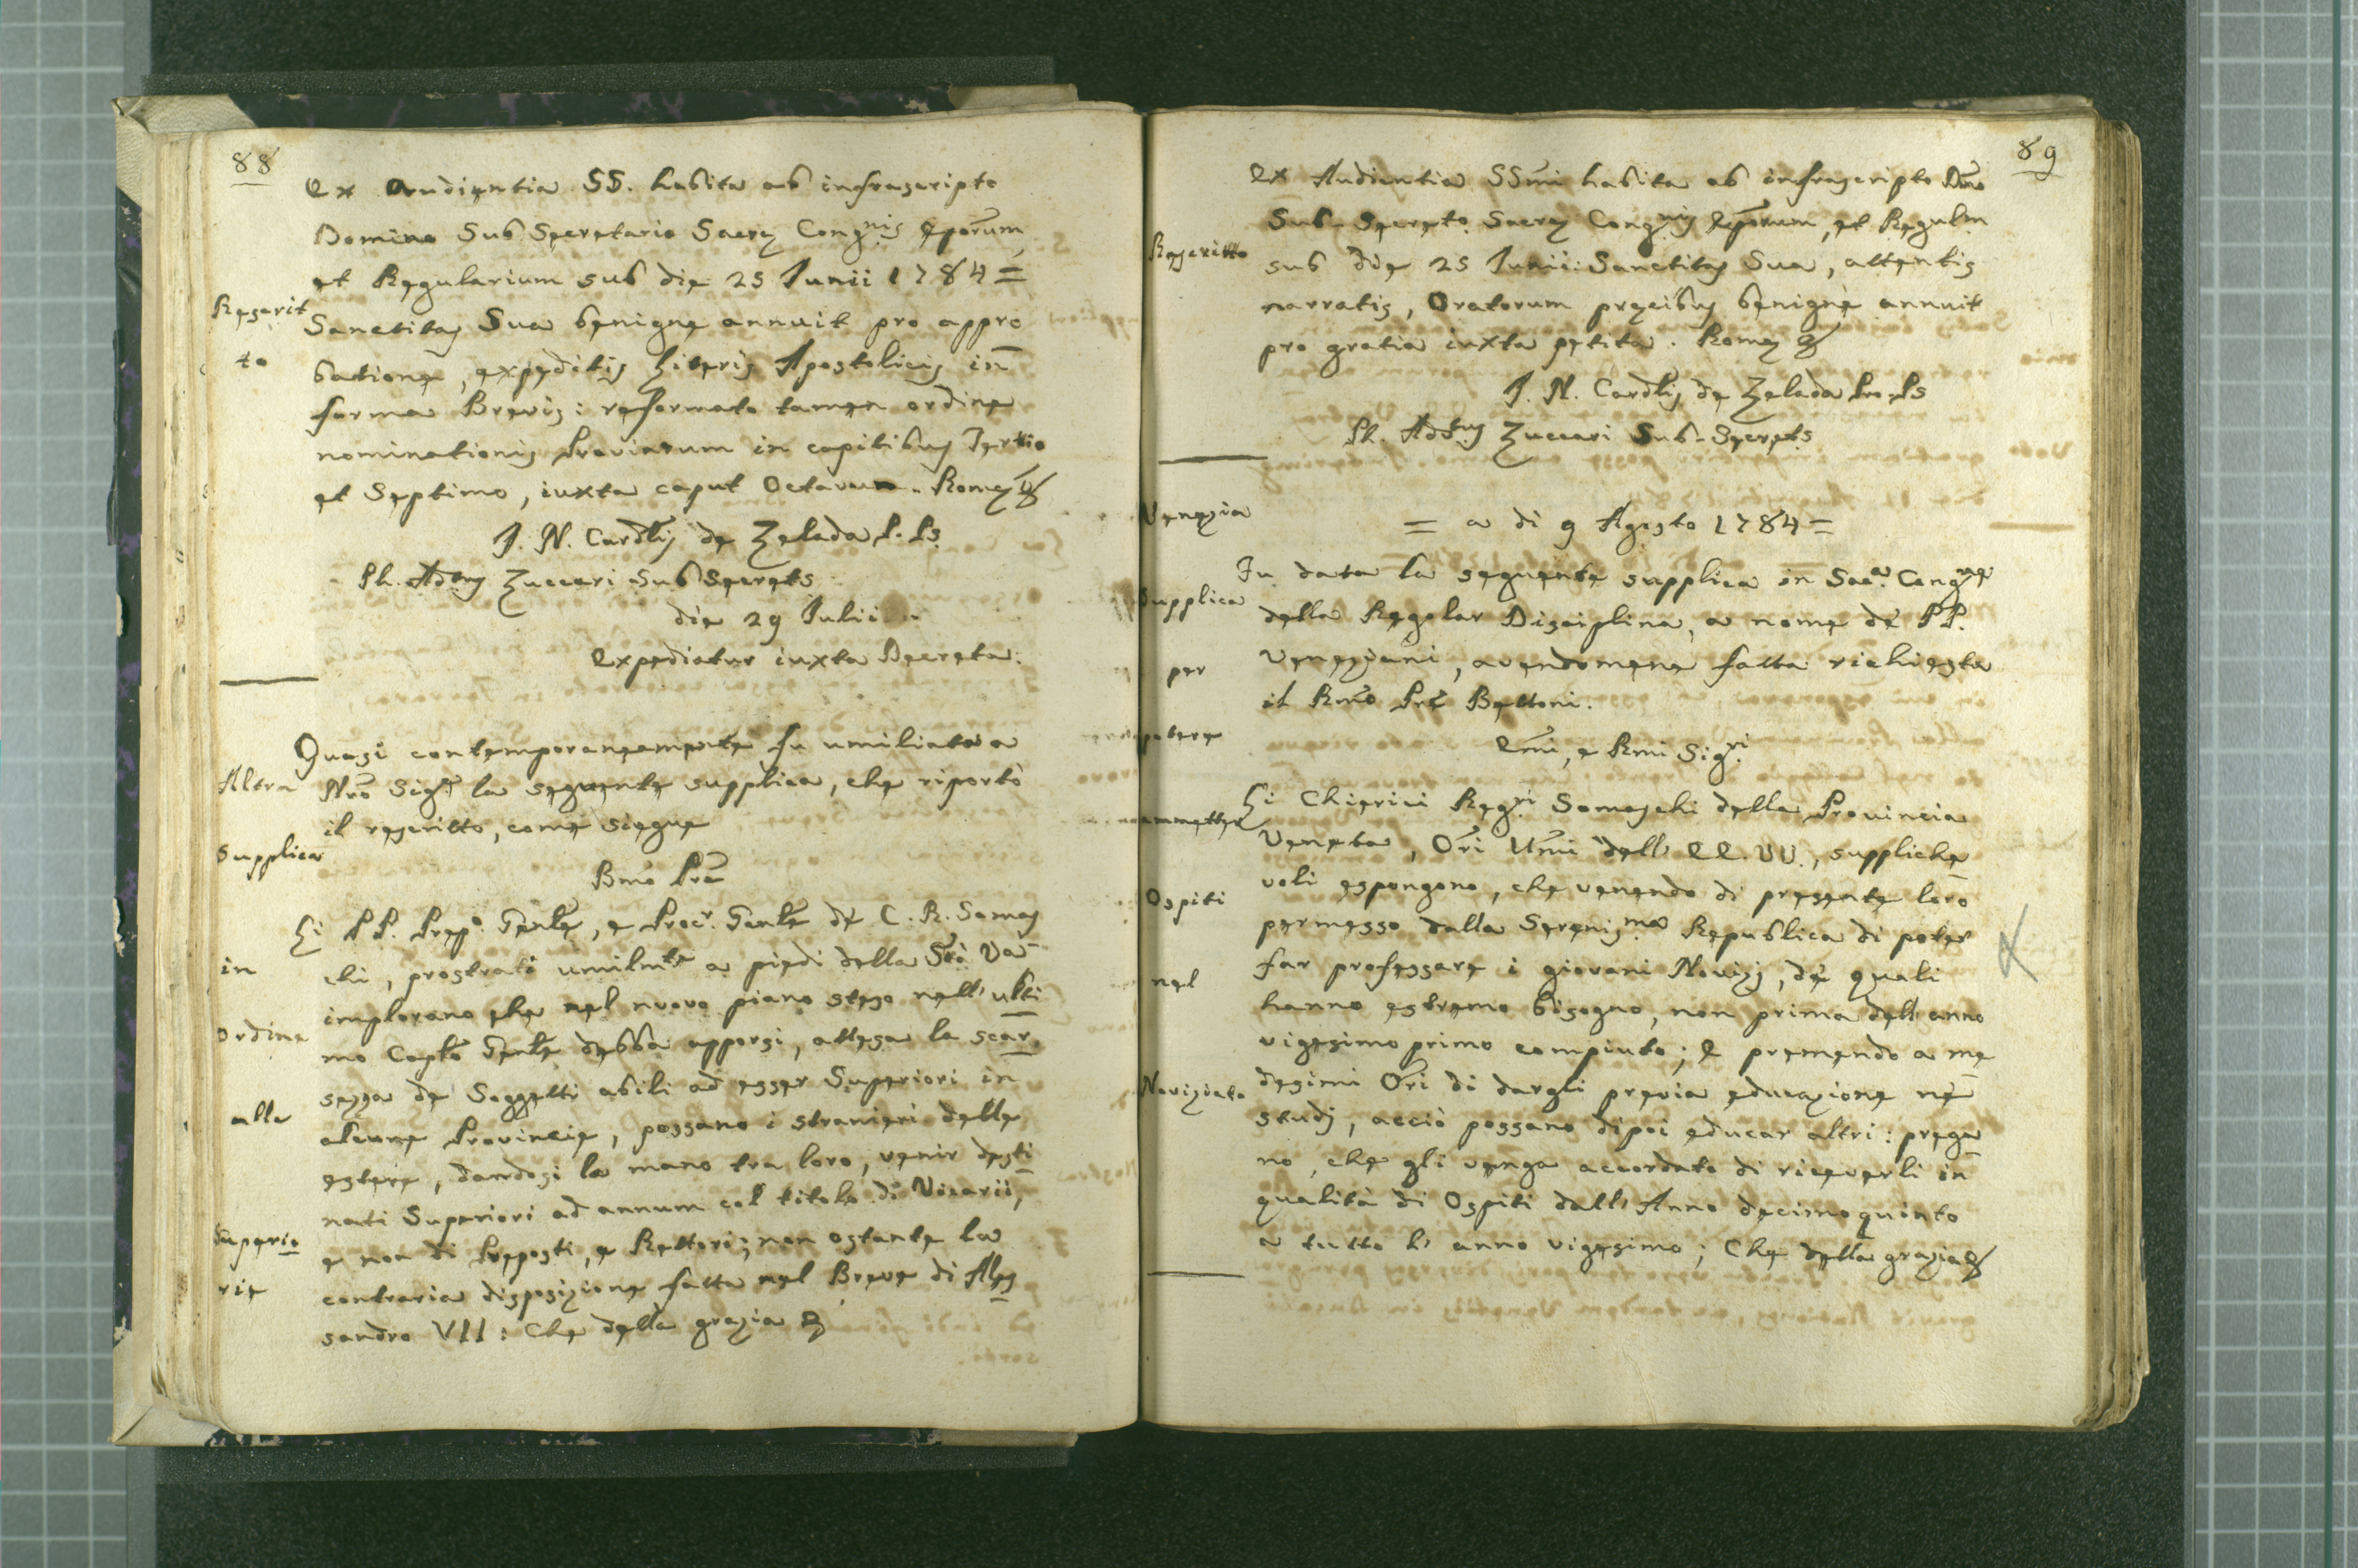 88
Ex Audientia SS. habita ab infrascripto
Domino Sub Secretario Sacrę Congnis Eporum,
et Regularium sub die 25 Iunii 1784 =
Rescrit
to
Sanctitas Sua benigne annuit pro appro
batione, expeditis Literis Apostolicis in
forma Brevis: reformato tamen ordine
nominationis Proviarum in capitibus Tertio
et Septimo, iuxta caput Octavum. Romę &
I. N. Cardlis de Zelada P. Ps
Ph. Adtus Zuccari Sub Secrets
die 29 Iulii
Expediatur iuxta Decreta:
Altra
Supplica
in
ordine
alle
Superio
rie
Quasi contemporaneamente fu umiliata a
Nro Sigre la seguente supplica, che riportò
il rescritto, come siegue
Bmo Pre
Li PP. Prepo. Genle, e Procr. Genle de' C. R. Somas
chi, prostrati umilmte a piedi della Stà Va
implorano che nel nuovo piano steso nell' ulti
mo Caplo Genle debba apporsi, attesa la scar
sezza de Soggetti abili ad esser Superiori in
alcune Provincie, possano i stranieri delle
estere, dandosi la mano tra loro, venir desti
nati Superiori ad annum col titolo di Vicarii,
e non di Preposti, e Rettori; non ostante la
contraria disposizione fatta nel Breve di Ales
sandro VII: Che della grazia &
89
Rescritto
Ex Audientia SSmi habita ab infrascripto Dno
Sub-Secreto Sacrę Congnis Eporum, et Regulm
sub die 25 Iunii: Sanctitas Sua, attentis
narratis, Oratorum precibus benigne annuit
pro gratia iuxta petita. Romę &
I. N. Cardlis de Zelada Pro-Ps
Ph. Adtus Zuccari Sub-Secrets
Venezia
Supplica
per
potere
ammetter
Ospiti
nel
Noviziato
= a di 9 Agosto 1784 =
Fu data la seguente supplica in Saca. Congne
della Regolar Disciplina, a nome de' PP.
Veneziani, avendomene fatta richiesta
il Rmo Pre Bettoni.
Emi, e Rmi Sigri
Li Chierici Regri Somaschi della Provincia
Veneta, Ori Umi dell' EE. VV., suppliche
voli espongono, che venendo di presente loro
permesso dalla Serenisma Republica di poter
far professare i giovani Novizj, de' quali
hanno estremo bisogno, non prima dell' anno
vigesimo primo compiuto; E premendo a me
desimi Ori di dargli previa educazione ne'
studj, acciò possano dipoi educar altri: prega
no, che gli venga accordato di riceverli in
qualità di Ospiti dall' Anno decimoquinto
a tutto l' anno vigesimo; Che della grazia &